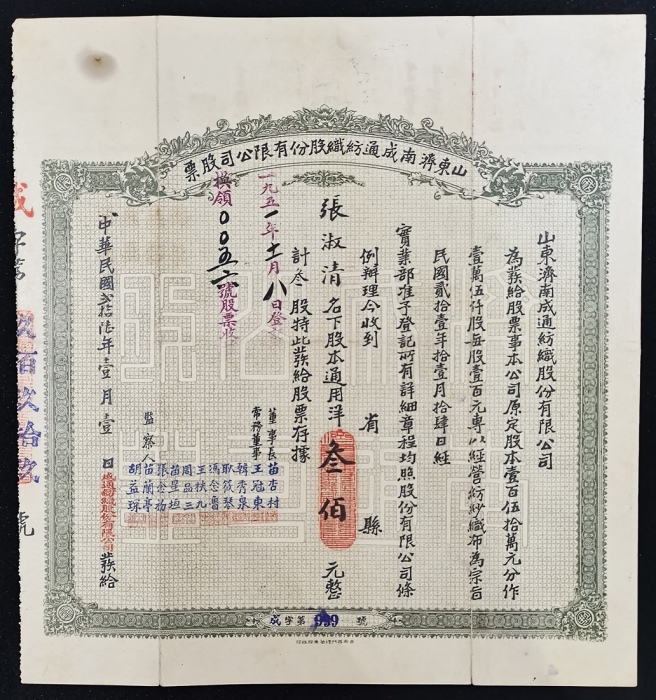 山東濟南成通紡織股份有限公司股票
山東濟南成通紡織股份有限公司
為發給股票事本公司原定股本壹百伍拾萬元分作
壹萬伍仟股每股壹百元專以經營紡紗織布為宗旨
民國貳拾壹年拾壹月拾肆日經
實業部准予登記所有詳細章程均照股份有限公司條
例辦理今收到 省 縣
張淑清名下股本通用洋叁佰元整
計叁股特此發給股票存據
一九五一年十一月八日登
換領00五六號股票
董事長 苗杏村
常務董事 王冠東
韓秀泉
耿筱琴
馮念魯
王扶九
周品三
苗星垣
張景
監察人 苗蘭亭
胡益琛
中華民國貳拾陸年壹月壹日成通紡織股份有限公司發給
成字第999號
成字第 玖百玖拾玖號